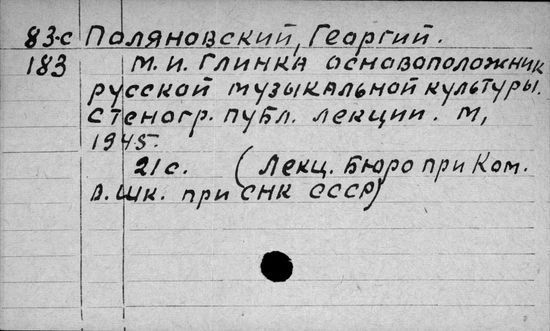 83-с Поляновский, Георгий.
183 М. И. Глинка основоположник
русской музыкальной культуры.
Стеногр. публ. лекции. М,
1945.
21 с. (Лекц. Бюро при Ком.
В. Шк. при СНК СССР)